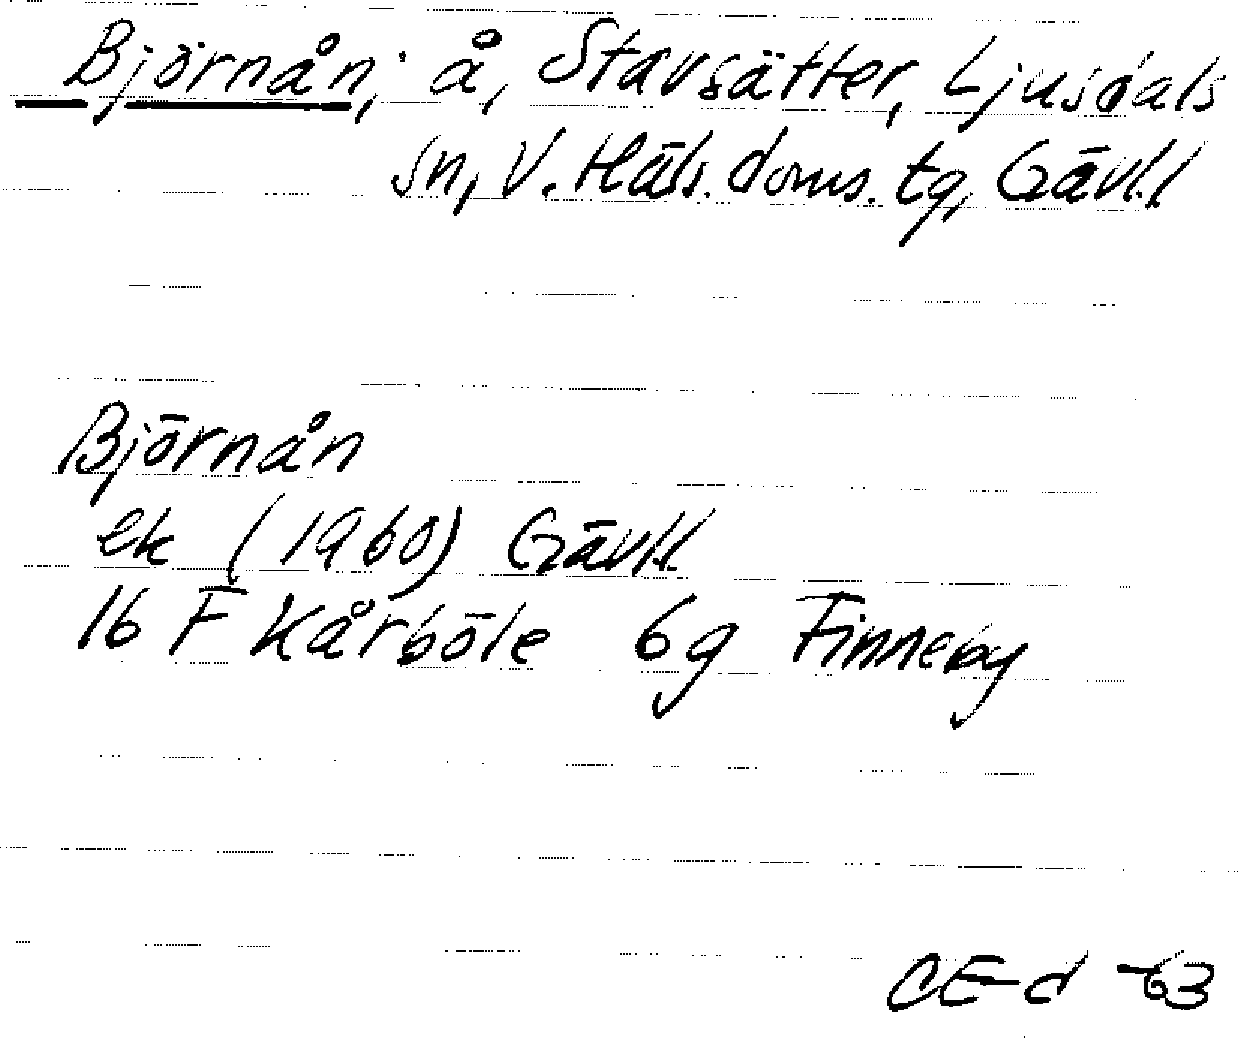 Björnån; å, Stavsätter, Ljusdals
sn, V. Häls. doms. tg, Gävl.l
Björnån
ek (1960) Gävl.l
16 F Kårböle 6g Finneby
CE-d -63